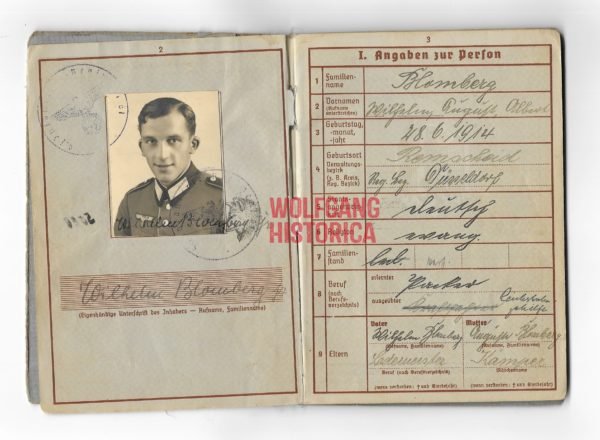 2
Wilhelm Blomberg
Wilhelm Blomberg
(Eigenhändige Unterschrift des Inhabers — Rufname, Familienname)
WOLFGANG
HISTORICA
3
I. Angaben zur Person
1 Familien-
name
Blomberg
2 Vornamen
(Rufname
unterstreichen)
Wilhelm, August, Albert
3 Geburtstag,
-monat,
-jahr
28.6.1914
4 Geburtsort
Verwaltungs-
bezirk
(z. B. Kreis,
Reg. Bezirk)
Remscheid
Reg. Bez. Düsseldorf
5 Staats-
angehörigkeit
deutsch
6 Religion
evang.
7 Familien-
stand
led.
8 Beruf
(nach
Berufs-
verzeichnis)
erlernter
Packer
ausgeübter
9 Eltern
Vater
Wilhelm Blomberg
(Rufname, Familienname)
Lademeister
Beruf (nach Berufsverzeichnis)
(wenn verstorben: † und Sterbejahr)
Mutter
Auguste Blomberg
(Rufname, Familienname)
Kamper
Mädchenname
(wenn verstorben: † und Sterbejahr)